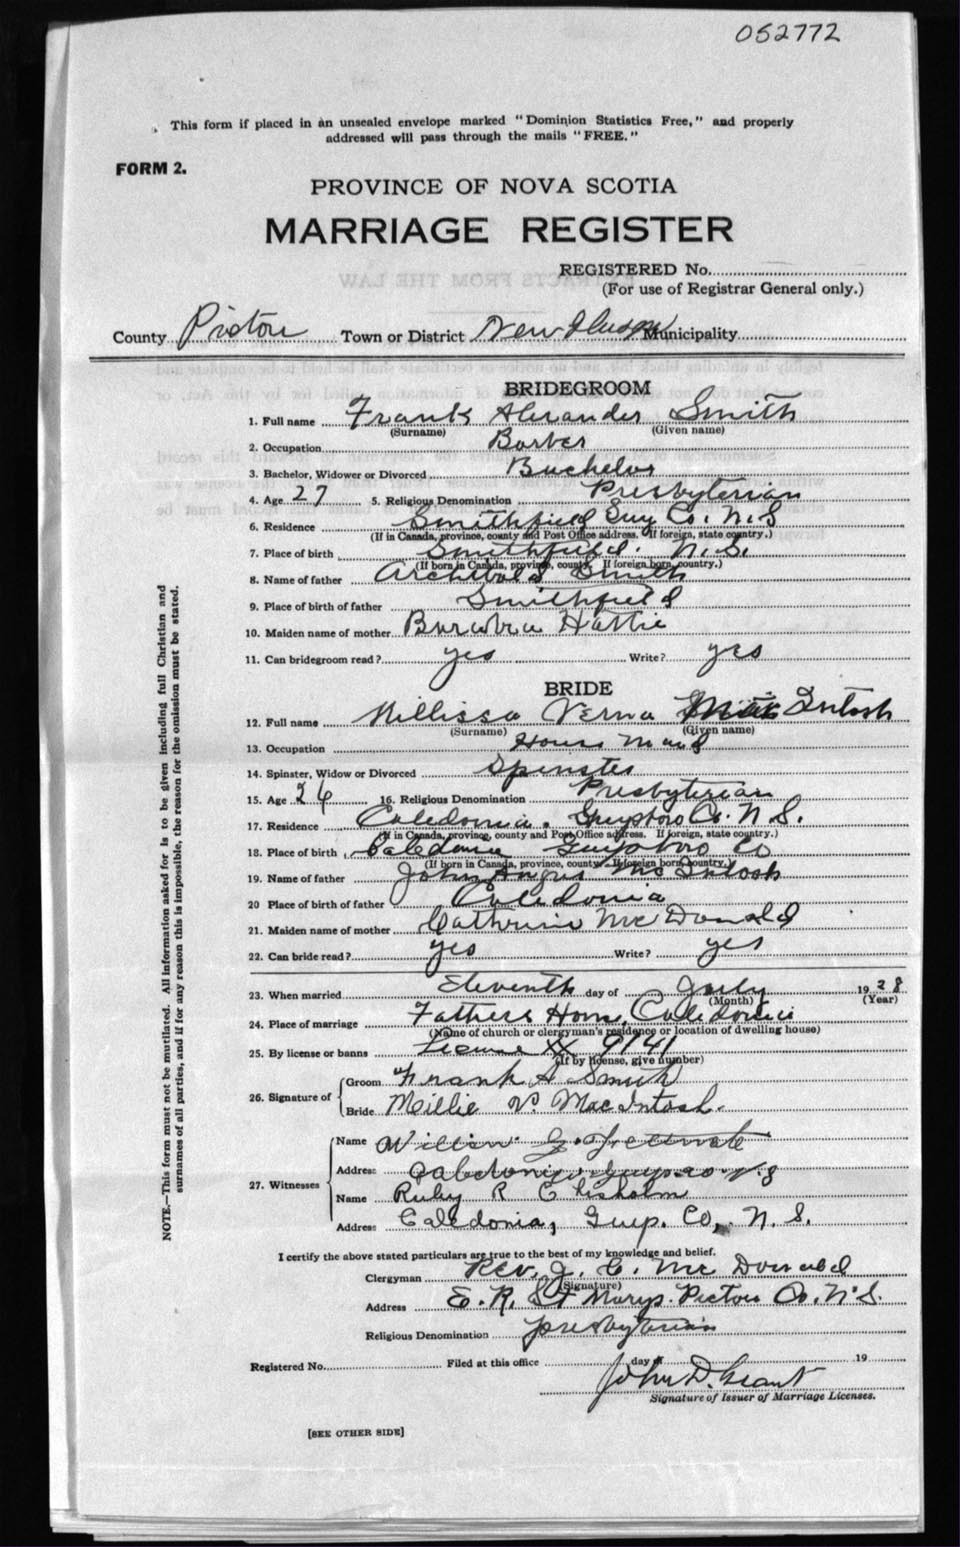 052772
This form if placed in an unsealed envelope marked "Dominion Statistics Free," and properly
addressed will pass through the mails "FREE."
FORM 2.
PROVINCE OF NOVA SCOTIA
MARRIAGE REGISTER
REGISTERED No.
(For use of Registrar General only.)
County Pictou Town or District New Municipality
BRIDEGROOM
1. Full name Frank Alexander Smith
(Surname) (Given name)
2. Occupation Barber
3. Bachelor, Widower or Divorced Bachelor
4. Age 27 5. Religious Denomination Presbyterian
6. Residence Smithfield Guy Co. N.S
(If in Canada, province, county and Post Office address. If foreign, state country.)
7. Place of birth Smithfield. N.S.
(If born in Canada, province, county. If foreign born, country.)
8. Name of father Archibald Smith
9. Place of birth of father Smithfield
10. Maiden name of mother Hattie
11. Can bridegroom read? yes Write? yes
BRIDE
12. Full name Millissa Verna Intosh
(Surname) (Given name)
13. Occupation House Maid
14. Spinster, Widow or Divorced Spinster
15. Age 26 16. Religious Denomination Presbyterian
17. Residence Caledonia. Guysboro Co. N.S.
(If in Canada, province, county and Post Office address. If foreign, state country.)
18. Place of birth Caledonia Guysboro Co
(If born in Canada, province, county. If foreign born, country.)
19. Name of father John Angus McIntosh
20 Place of birth of father Caledonia
21. Maiden name of mother Catherine McDonald
22. Can bride read? yes Write? yes
23. When married Eleventh day of July 1928
(Month) (Year)
24. Place of marriage Fathers Home, Caledonia
(Name of church or clergyman's residence or location of dwelling house)
25. By license or banns License XX 9741
(If by license, give number)
26. Signature of
Groom Frank A Smith
Bride Millie V. MacIntosh.
27. Witnesses
Name G.
Address Caledonia N.S
Name Ruby R Chisholm
Address Caledonia, Guys. Co, N. S.
I certify the above stated particulars are true to the best of my knowledge and belief.
Clergyman Rev. J. C. McDonald
(Signature)
Address E. R. St Marys. Pictou Co. N.S.
Religious Denomination Presbyterian
Registered No. Filed at this office day of 19
John D. Grant
Signature of Issuer of Marriage Licenses.
[SEE OTHER SIDE]
NOTE.—This form must not be mutilated. All information asked for is to be given including full Christian and
surnames of all parties, and if for any reason this is impossible, the reason for the omission must be stated.